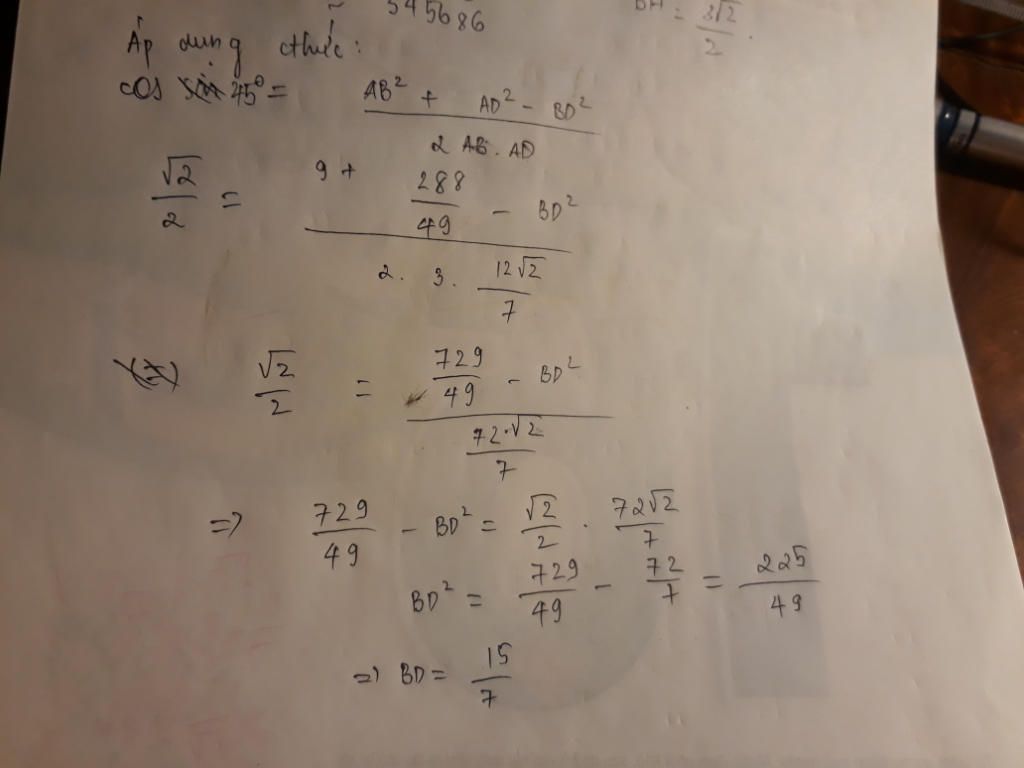 545686
BH = 3√2 / 2 .
Áp dụng cthức :
cos 45° = (AB² + AD² - BD²) / (2 AB . AD)
√2 / 2 = (9 + 288/49 - BD²) / (2 . 3 . 12√2/7)
√2 / 2 = (729/49 - BD²) / (72.√2/7)
=> 729/49 - BD² = √2/2 . 72√2/7
BD² = 729/49 - 72/7 = 225/49
=> BD = 15/7